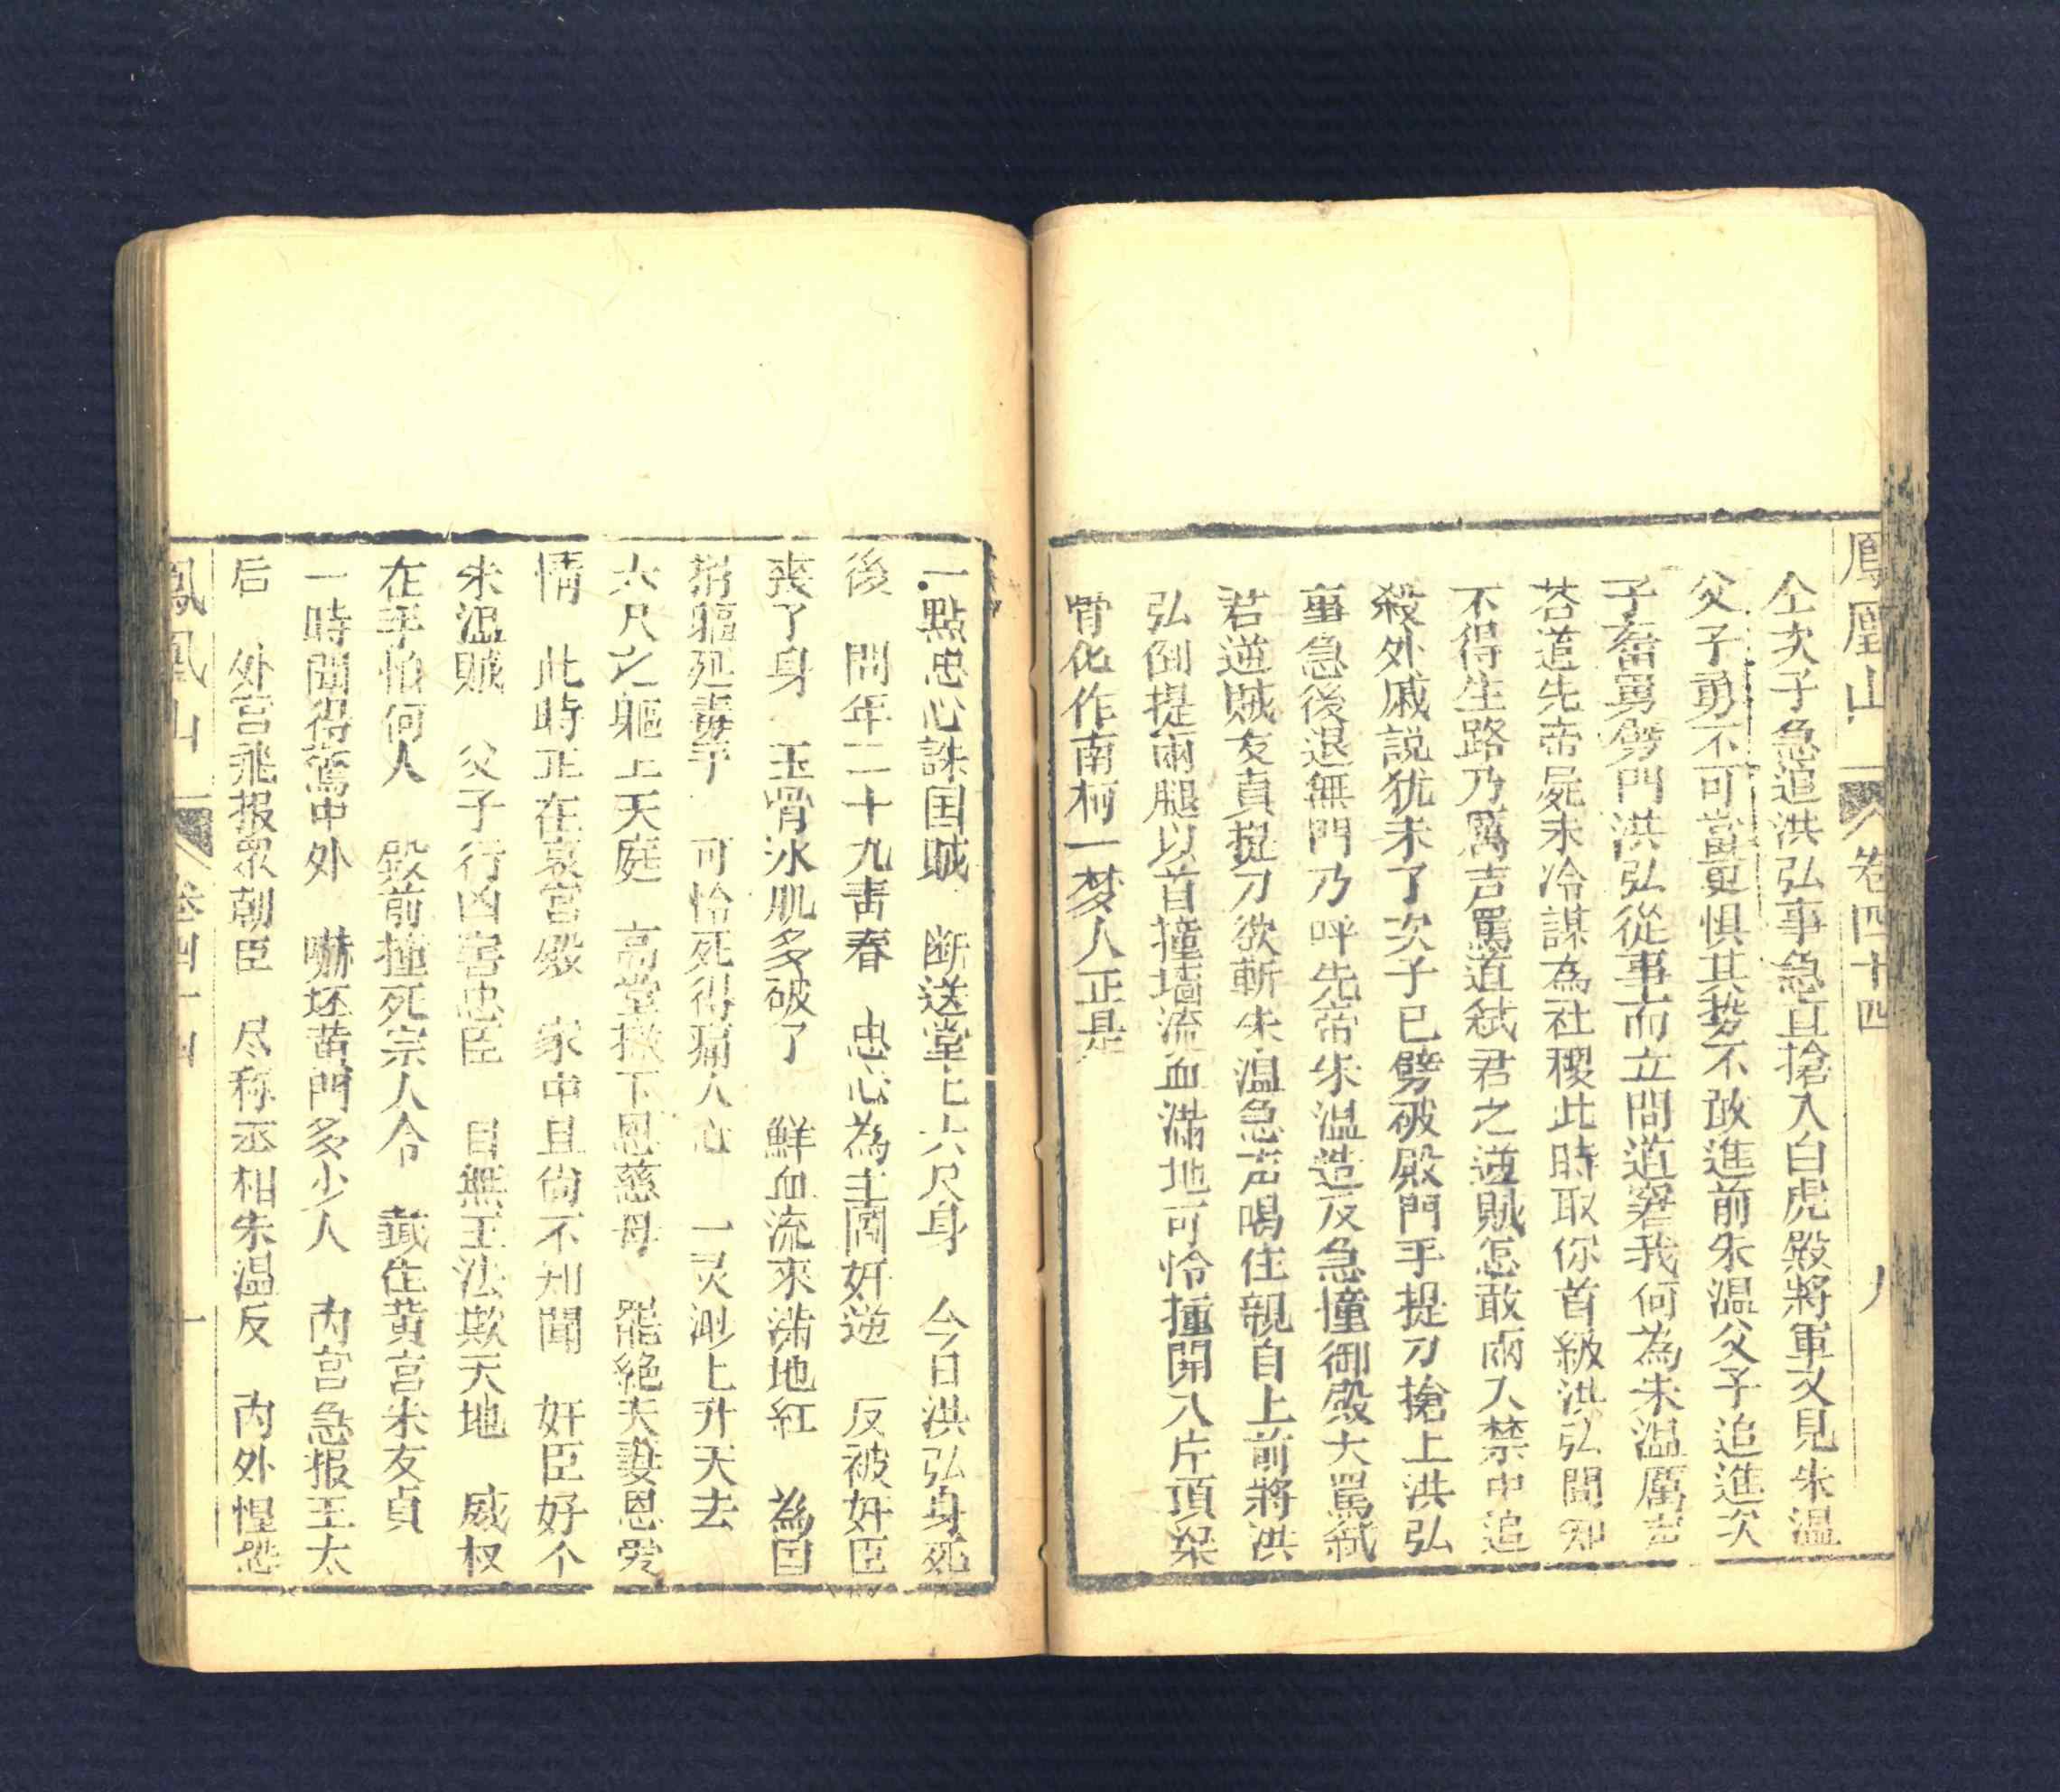 鳳凰山 卷四十四 八
仝次子急追洪弘事急直搶入白虎殿將軍又見朱温
父子勇不可當更惧其势不敢進前朱温父子追進次
子奮勇劈門洪弘從事而立問道罢我何為朱温厲声
荅道先帝屍未冷謀為社稷此時取你首級洪弘聞知
不得生路乃厲言罵道弑君之逆賊怎敢兩人禁中追
殺外戚説犹未了次子已劈破殿門手提刀搶上洪弘
事急後退無門乃呼先帝朱温造反急憧御殿大罵弑
君逆賊友貞提刀欲斬朱温急声喝住親自上前將洪
弘倒提兩腿以首撞墻流血滿地可怜撞開八片頂梁
骨化作南柯一梦人正是
一點忠心誅国賊　断送堂七六尺身　今日洪弘身死
後　問年二十九青春　忠心為主圖奸逆　反被奸臣
丧了身　玉骨氷肌多破了　鮮血流來滿地紅　為国
捐軀死毒手　可怜死得痛人心　一灵渺上升天去
六尺之軀上天庭　高堂撇下恩慈母　罷絶夫妻恩愛
情　此時正在哀宫殿　家中且尚不知聞　奸臣好个
朱温賊　父子行凶害忠臣　目無王法欺天地　威权
在手怕何人　殿前撞死宗人令　截住黄宫朱友貞
一時聞得驚中外　嚇坯黄門多少人　内宫急报王太
后　外宫飛报衆朝臣　尽称丞相朱温反　内外惶恐
鳳凰山 卷四十四